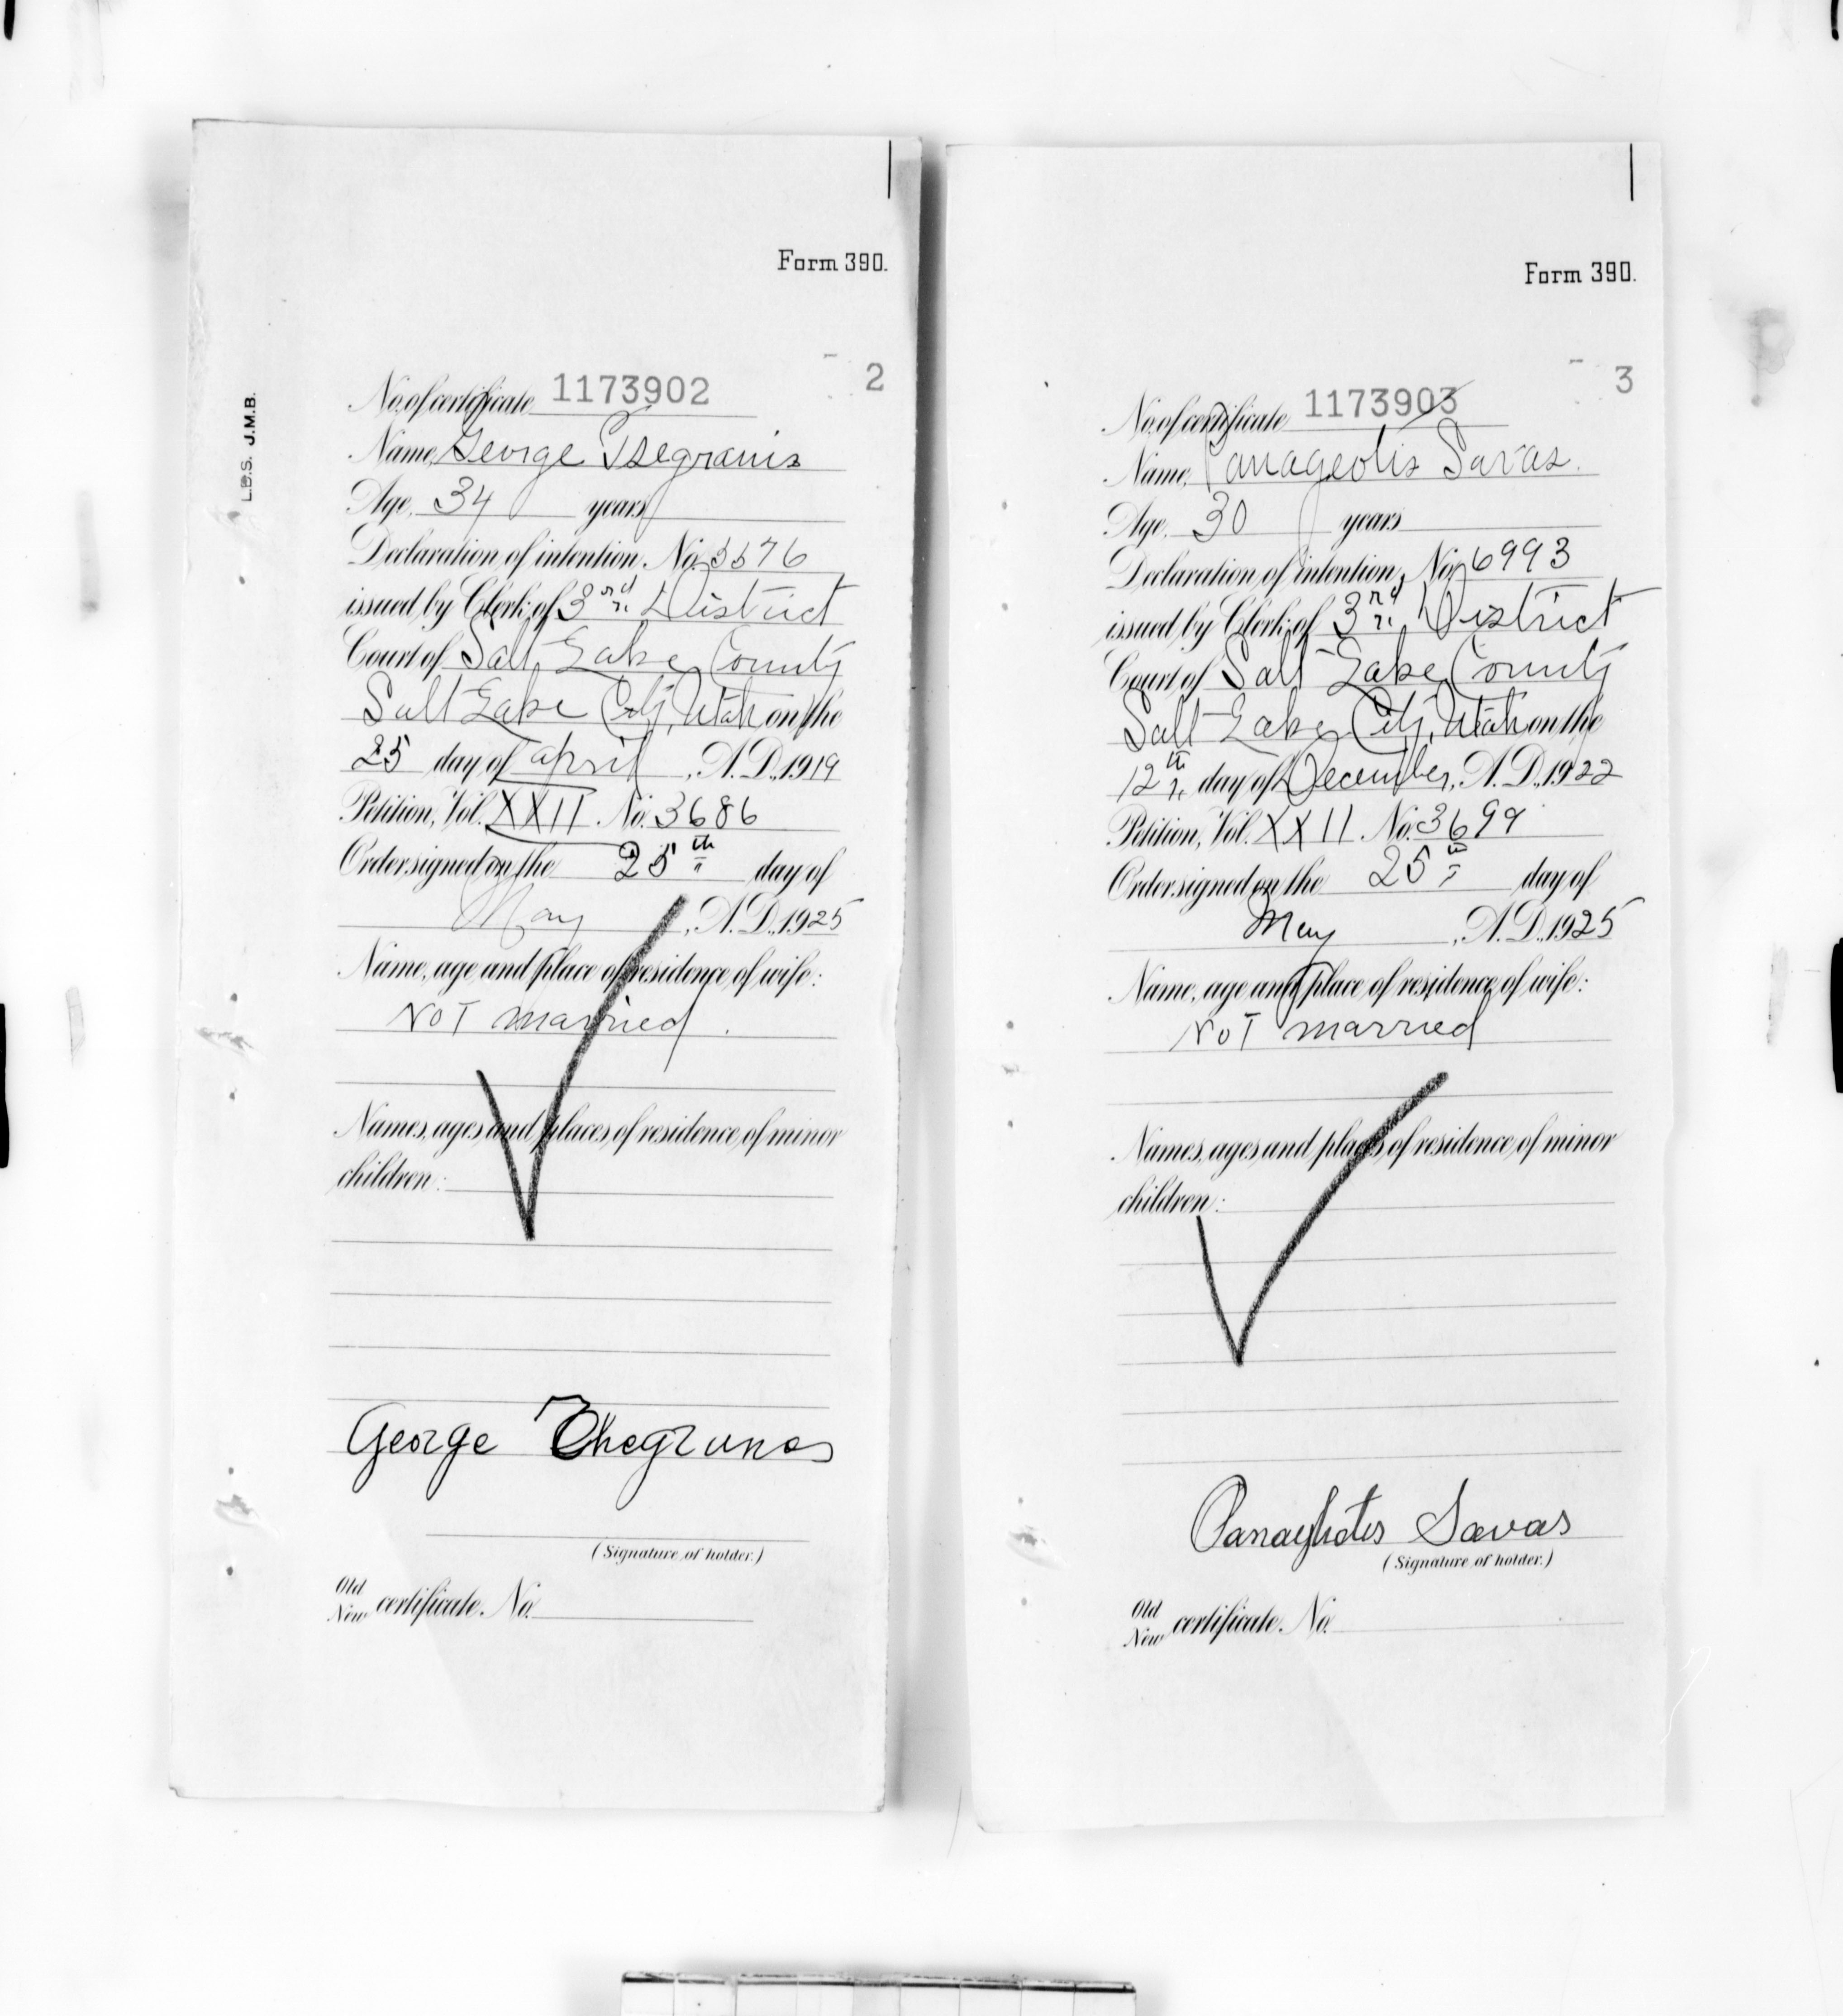 Form 390.
2
L.D.S. J.M.B.
No. of certificate 1173902
Name, George Tsegranis
Age, 34 years
Declaration of intention, No. 5576
issued by Clerk of 3rd District
Court of Salt Lake County
Salt Lake City, Utah on the
25 day of April, A.D., 1919
Petition, Vol. XXII No. 3686
Order signed on the 25th day of
May, A.D., 1925
Name, age and place of residence of wife:
Not married.
Names, ages and places of residence of minor
children:
George
(Signature of holder.)
Old
New certificate. No.
Form 390.
3
No. of certificate 1173903
Name, Panageotis Savas.
Age, 30 years
Declaration of intention, No. 6993
issued by Clerk of 3rd District
Court of Salt Lake County
Salt Lake City, Utah on the
12th day of December, A.D., 1922
Petition, Vol. XXII No. 3699
Order signed on the 25th day of
May, A.D., 1925
Name, age and place of residence of wife:
Not married
Names, ages and places of residence of minor
children:
Panayhotes Savas
(Signature of holder.)
Old
New certificate. No.